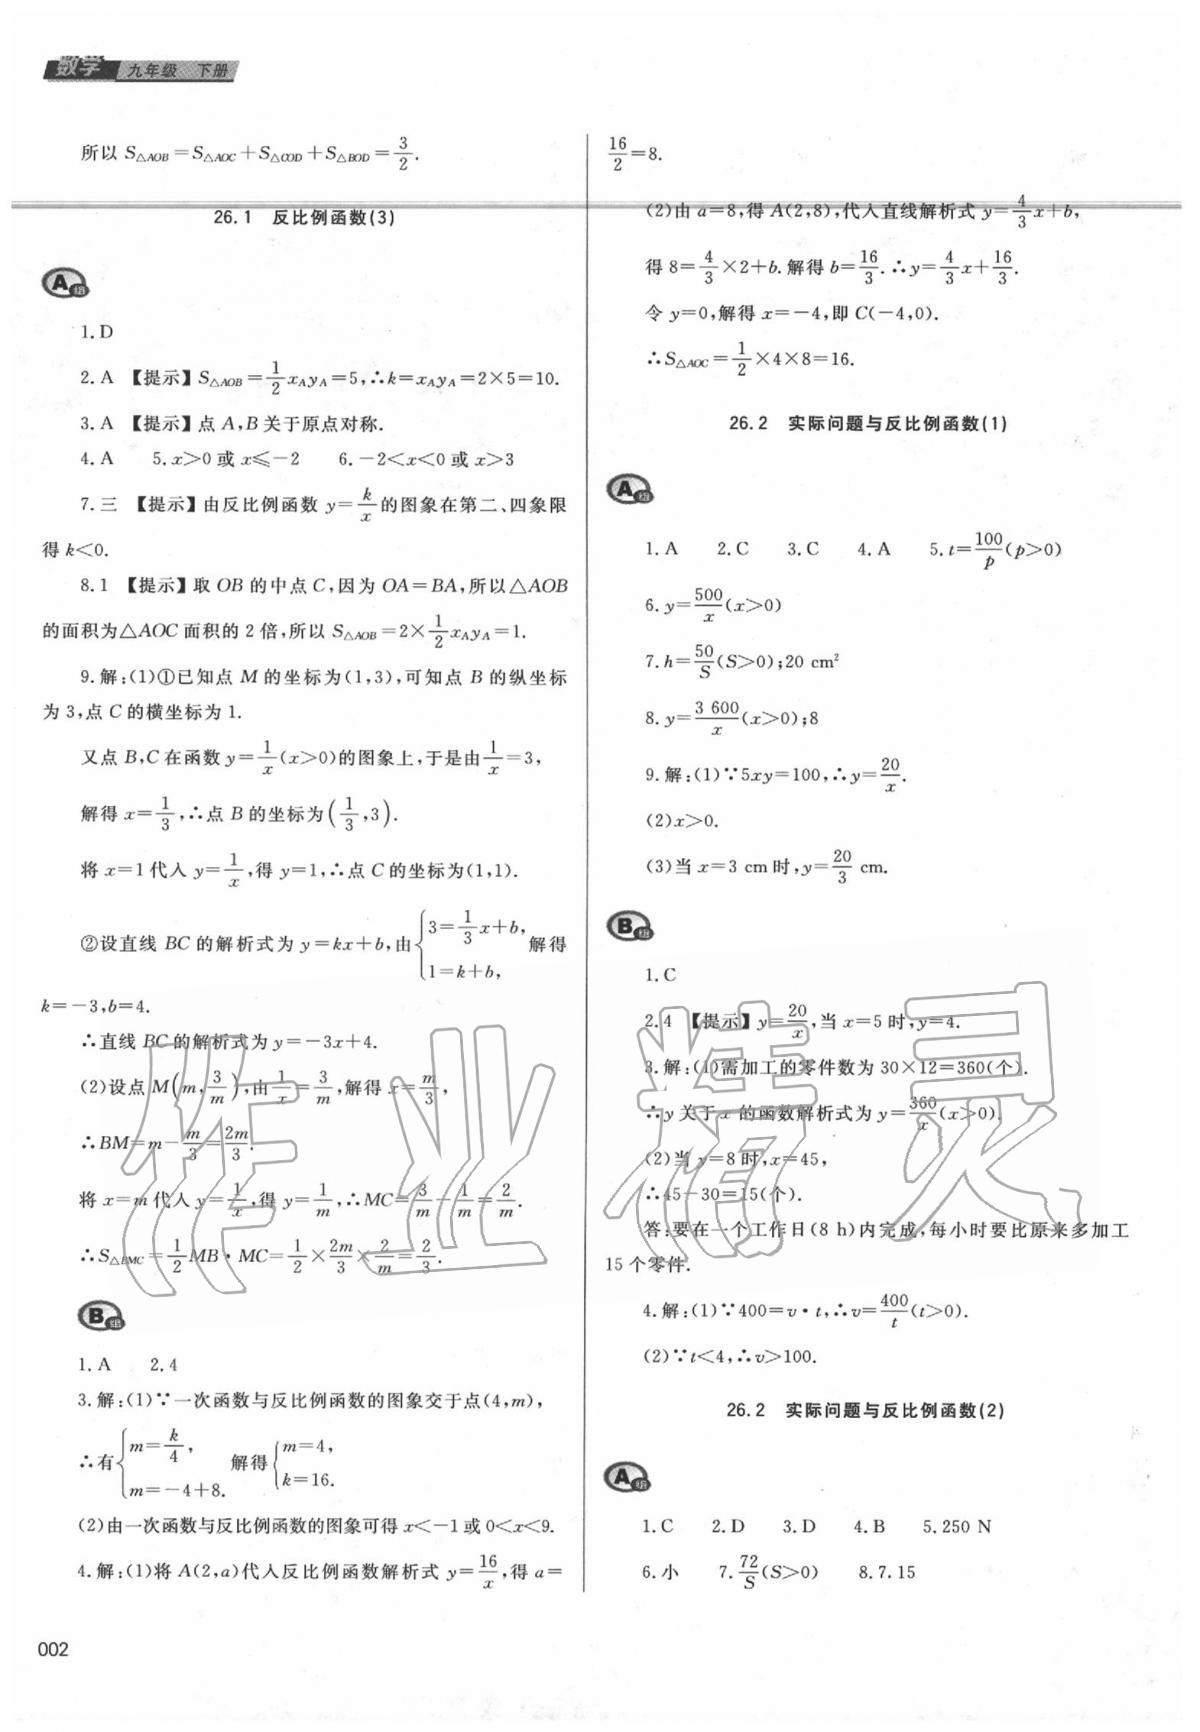 数学 九年级 下册
所以 S△AOB=S△AOC+S△COD+S△BOD=3/2.
26.1 反比例函数(3)
A组
1.D
2.A 【提示】S△AOB=1/2 xAyA=5,∴k=xAyA=2×5=10.
3.A 【提示】点 A,B 关于原点对称.
4.A 5.x>0 或 x⩽-2 6.-2<x<0 或 x>3
7.三 【提示】由反比例函数 y=k/x 的图象在第二、四象限
得 k<0.
8.1 【提示】取 OB 的中点 C,因为 OA=BA,所以△AOB
的面积为△AOC 面积的 2 倍,所以 S△AOB=2×1/2 xAyA=1.
9.解:(1)①已知点 M 的坐标为(1,3),可知点 B 的纵坐标
为 3,点 C 的横坐标为 1.
又点 B,C 在函数 y=1/x(x>0)的图象上,于是由1/x=3,
解得 x=1/3,∴点 B 的坐标为(1/3,3).
将 x=1 代入 y=1/x,得 y=1,∴点 C 的坐标为(1,1).
②设直线 BC 的解析式为 y=kx+b,由{3=1/3 x+b, 1=k+b, 解得
k=-3,b=4.
∴直线 BC 的解析式为 y=-3x+4.
(2)设点 M(m,3/m),由1/x=3/m,解得 x=m/3,
∴BM=m-m/3=2m/3.
将 x=m 代入 y=1/x,得 y=1/m,∴MC=3/m-1/m=2/m.
∴S△BMC=1/2 MB·MC=1/2×2m/3×2/m=2/3.
B组
1.A 2.4
3.解:(1)∵一次函数与反比例函数的图象交于点(4,m),
∴有{m=k/4, m=-4+8. 解得{m=4, k=16.
(2)由一次函数与反比例函数的图象可得 x<-1 或 0<x<9.
4.解:(1)将 A(2,a)代入反比例函数解析式 y=16/x,得 a=
002
16/2=8.
(2)由 a=8,得 A(2,8),代入直线解析式 y=4/3 x+b,
得 8=4/3×2+b.解得 b=16/3.∴y=4/3 x+16/3.
令 y=0,解得 x=-4,即 C(-4,0).
∴S△AOC=1/2×4×8=16.
26.2 实际问题与反比例函数(1)
A组
1.A 2.C 3.C 4.A 5.t=100/p(p>0)
6.y=500/x(x>0)
7.h=50/S(S>0);20 cm²
8.y=3 600/x(x>0);8
9.解:(1)∵5xy=100,∴y=20/x.
(2)x>0.
(3)当 x=3 cm 时,y=20/3 cm.
B组
1.C
2.4 【提示】y=20/x,当 x=5 时,y=4.
3.解:(1)需加工的零件数为 30×12=360(个).
∴y 关于 x 的函数解析式为 y=360/x(x>0).
(2)当 y=8 时,x=45,
∴45-30=15(个).
答:要在一个工作日(8 h)内完成,每小时要比原来多加工
15 个零件.
4.解:(1)∵400=v·t,∴v=400/t(t>0).
(2)∵t<4,∴v>100.
26.2 实际问题与反比例函数(2)
A组
1.C 2.D 3.D 4.B 5.250 N
6.小 7.72/S(S>0) 8.7.15
作业精灵